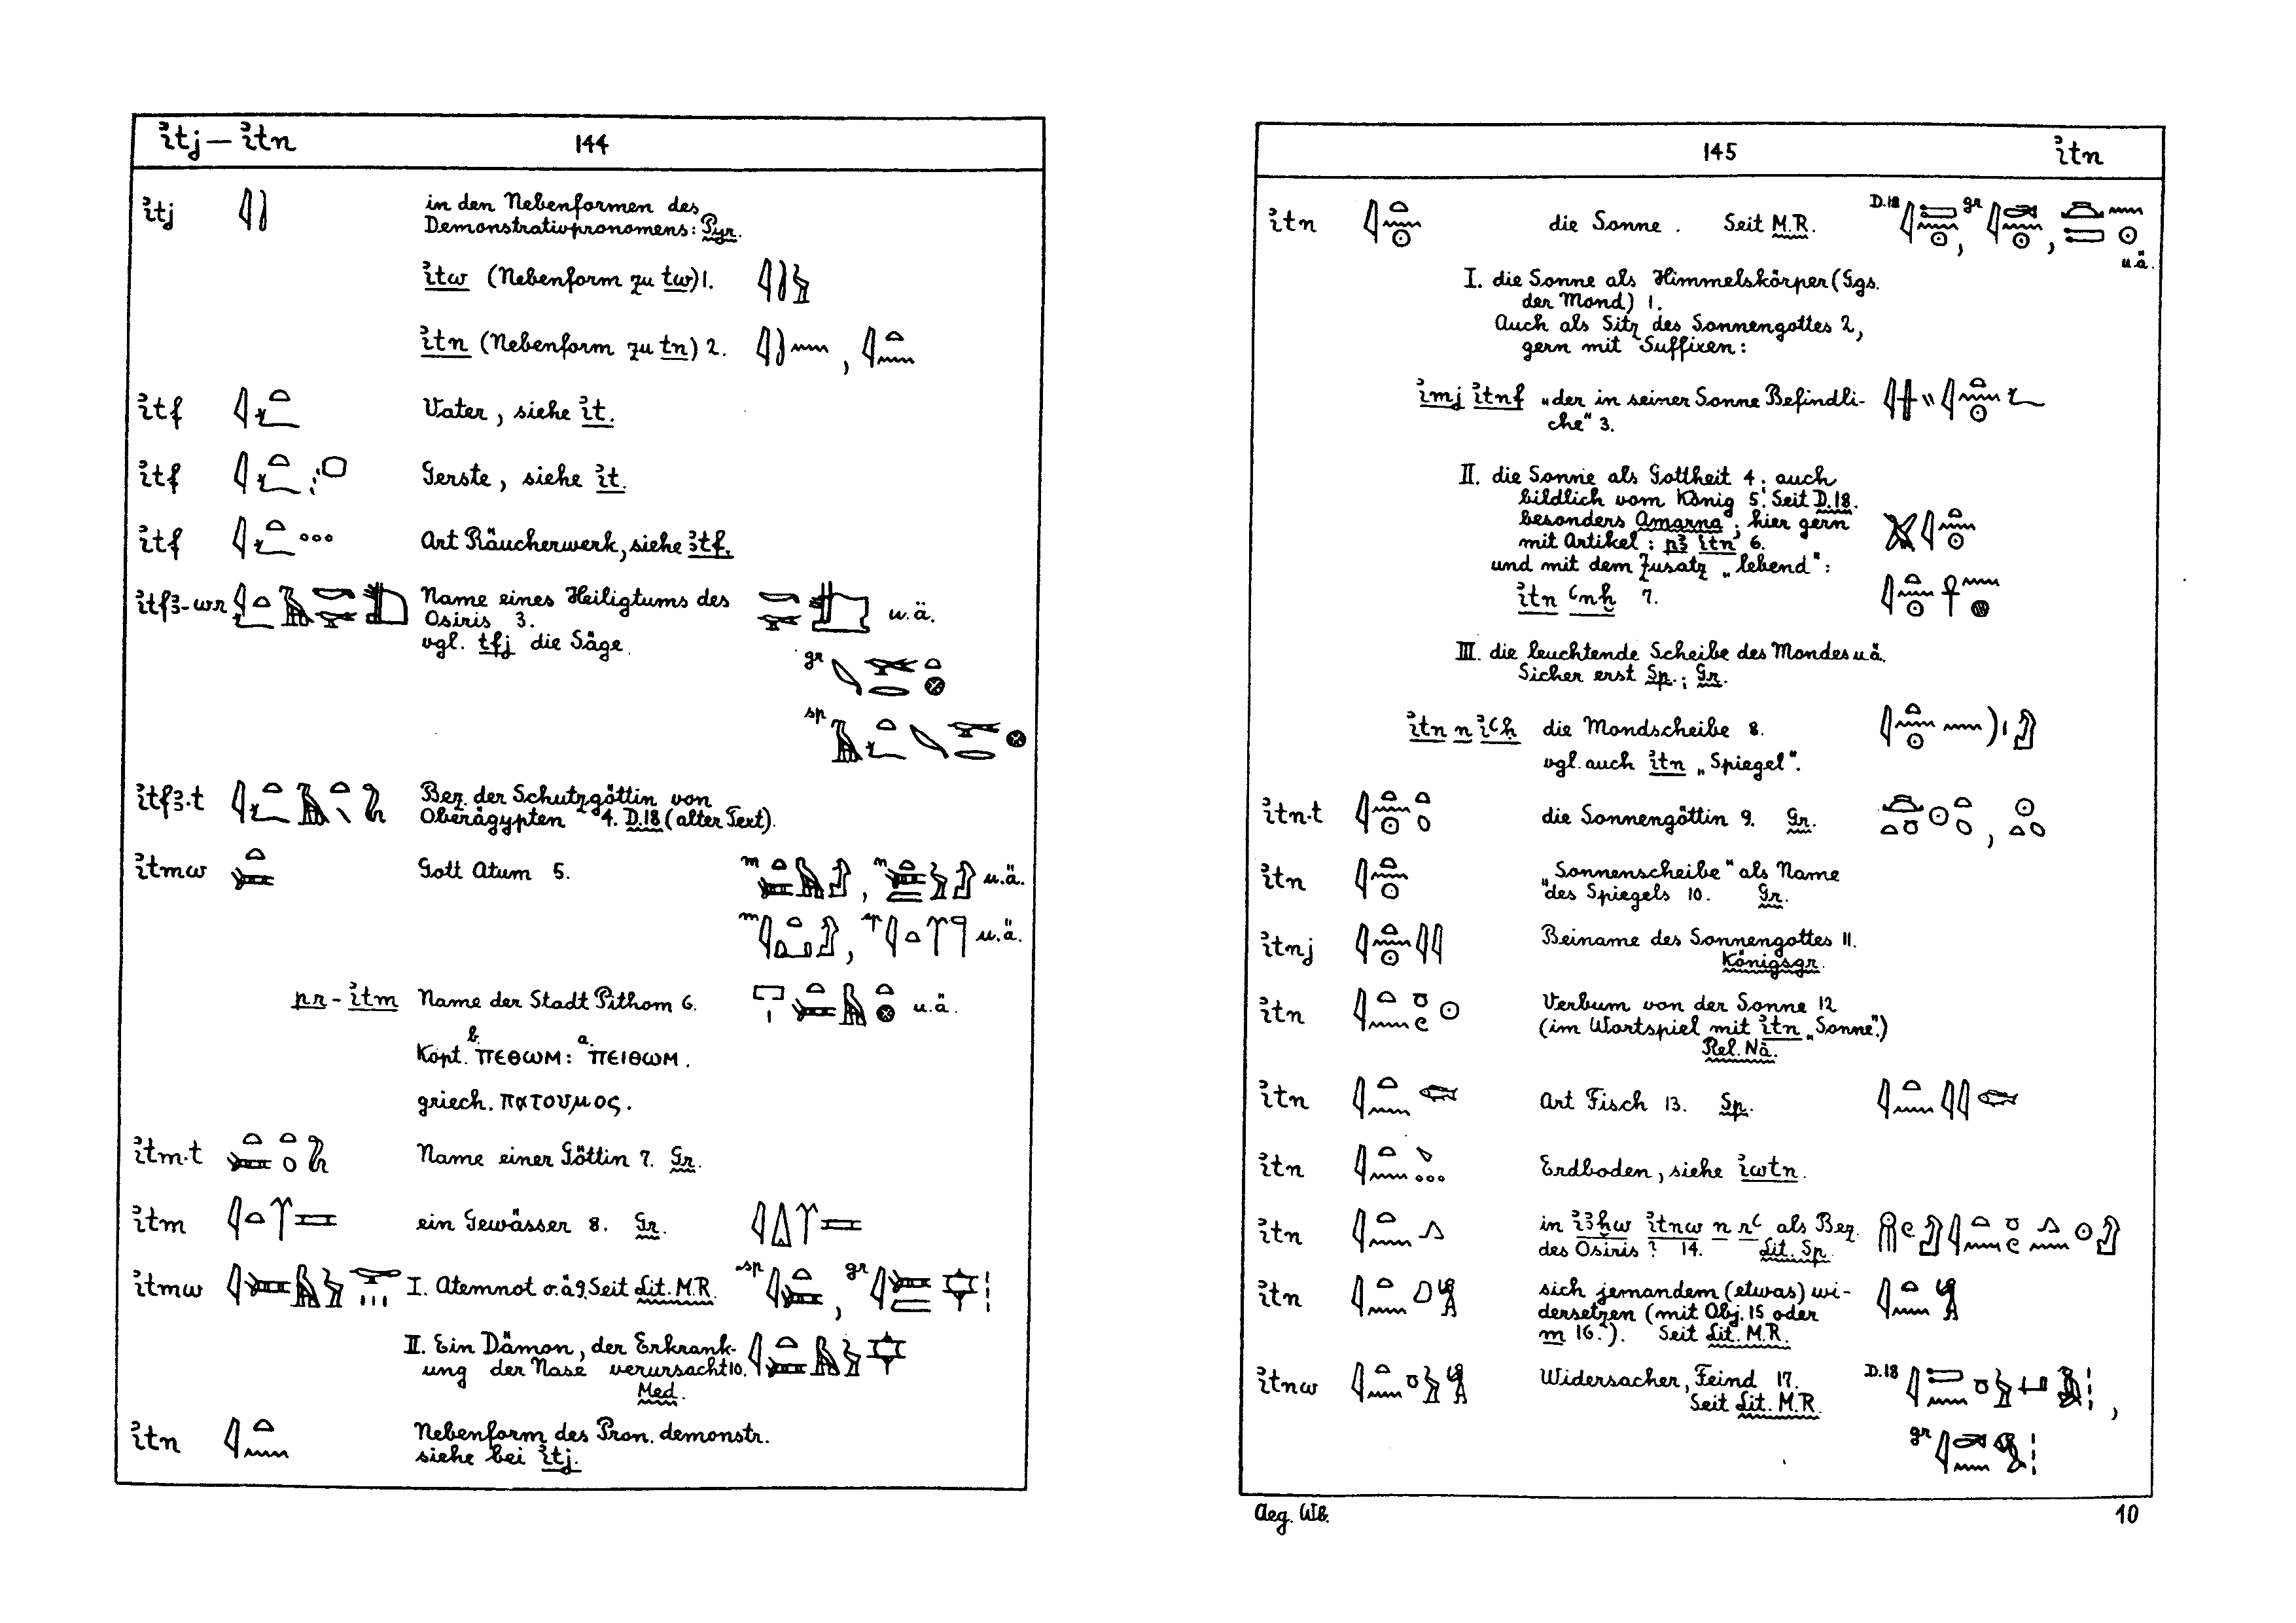 ꞽtj — ꞽtn 144
ꞽtj in den Nebenformen des
Demonstrativpronomens: Pyr.
ꞽtw (Nebenform zu tw) 1.
ꞽtn (Nebenform zu tn) 2. ,
ꞽtf Vater, siehe ꞽt.
ꞽtf Gerste, siehe ꞽt.
ꞽtf Art Räucherwerk, siehe ꜣtf.
ꞽtfꜣ-wr Name eines Heiligtums des u.ä.
Osiris 3.
vgl. tfj die Säge.
gr
sp
ꞽtfꜣ.t Bez. der Schutzgöttin von
Oberägypten 4. D.18 (alter Text).
ꞽtmw Gott Atum 5. m , n u.ä.
m , sp u.ä.
pr-ꞽtm Name der Stadt Pithom 6. u.ä.
Kopt. b. ⲡⲉⲑⲱⲙ: a. ⲡⲉⲓⲑⲱⲙ.
griech. πατουμος.
ꞽtm.t Name einer Göttin 7. Gr.
ꞽtm ein Gewässer 8. Gr.
ꞽtmw I. Atemnot o.ä 9. Seit Lit. M.R. sp , gr
II. Ein Dämon, der Erkrank-
ung der Nase verursacht 10.
Med.
ꞽtn Nebenform des Pron. demonstr.
siehe bei ꞽtj.
145 ꞽtn
ꞽtn die Sonne. Seit M.R. D.18 , gr , u.ä.
I. die Sonne als Himmelskörper (Ggs.
der Mond) 1.
Auch als Sitz des Sonnengottes 2,
gern mit Suffixen:
ꞽmj ꞽtnf „der in seiner Sonne Befindli-
che" 3.
II. die Sonne als Gottheit 4; auch
bildlich vom König 5. Seit D.18.
besonders Amarna; hier gern
mit Artikel: pꜣ ꞽtn 6.
und mit dem Zusatz „lebend":
ꞽtn ꜥnḫ 7.
III. die leuchtende Scheibe des Mondes u.ä.
Sicher erst Sp.; Gr.
ꞽtn n ꞽꜥḥ die Mondscheibe 8.
vgl. auch ꞽtn „Spiegel".
ꞽtn.t die Sonnengöttin 9. Gr. ,
ꞽtn „Sonnenscheibe" als Name
des Spiegels 10. Gr.
ꞽtnj Beiname des Sonnengottes 11.
Königsgr.
ꞽtn Verbum von der Sonne 12
(im Wortspiel mit ꞽtn „Sonne".)
Rel. Nä.
ꞽtn Art Fisch 13. Sp.
ꞽtn Erdboden, siehe ꞽwtn.
ꞽtn in ꞽꜣḫw ꞽtnw n rꜥ als Bez.
des Osiris? 14. Lit. Sp.
ꞽtn sich jemandem (etwas) wi-
dersetzen (mit Obj. 15 oder
m 16.). Seit Lit. M.R.
ꞽtnw Widersacher, Feind 17. D.18 ,
Seit Lit. M.R.
gr
Aeg. Wb. 10